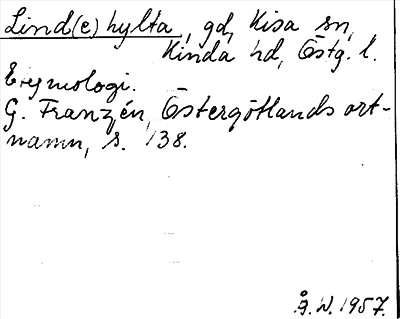 Lind(e)hylta, gd, Kisa sn,
Kinda hd, Östg. l.
Etymologi.
G. Franzén, Östergötlands ort-
namn, s. 138.
Å. W. 1957.